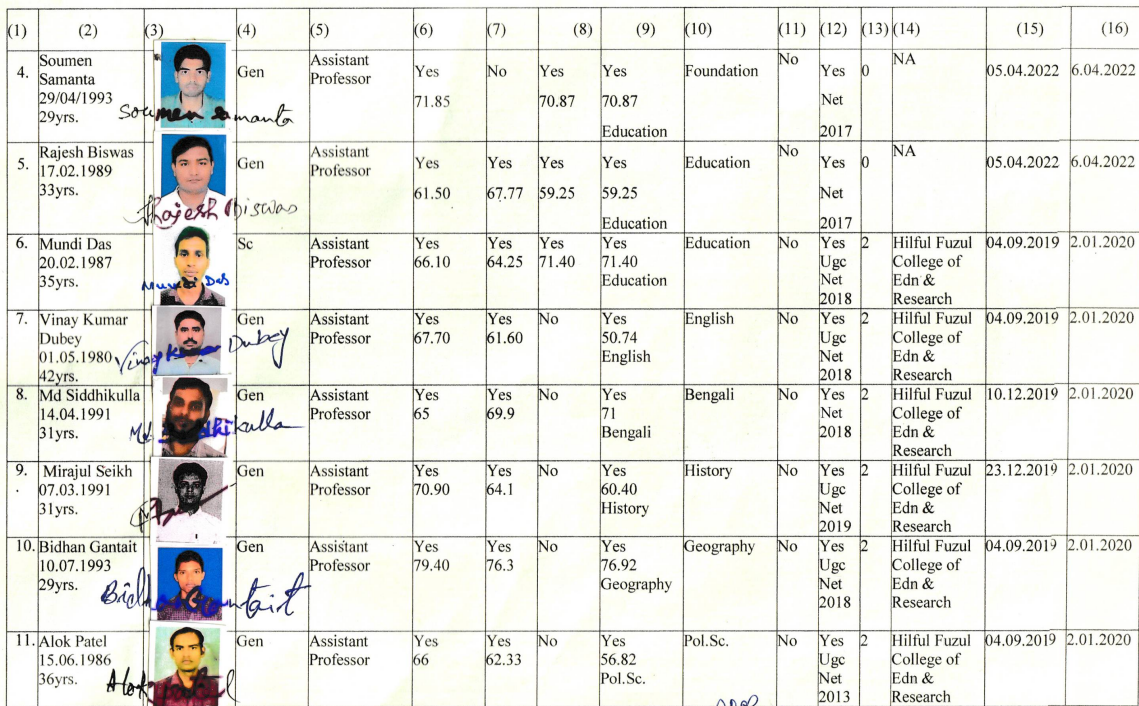 (1) (2) (3) (4) (5) (6) (7) (8) (9) (10) (11) (12) (13) (14) (15) (16)
4. Soumen Samanta 29/04/1993 29yrs. Soumen Samanta Gen Assistant Professor Yes 71.85 No Yes 70.87 Yes 70.87 Education Foundation No Yes Net 2017 0 NA 05.04.2022 6.04.2022
5. Rajesh Biswas 17.02.1989 33yrs. Rajesh Biswas Gen Assistant Professor Yes 61.50 Yes 67.77 Yes 59.25 Yes 59.25 Education Education No Yes Net 2017 0 NA 05.04.2022 6.04.2022
6. Mundi Das 20.02.1987 35yrs. Mundi Das Sc Assistant Professor Yes 66.10 Yes 64.25 Yes 71.40 Yes 71.40 Education Education No Yes Ugc Net 2018 2 Hilful Fuzul College of Edn & Research 04.09.2019 2.01.2020
7. Vinay Kumar Dubey 01.05.1980 42yrs. Vinay Kumar Dubey Gen Assistant Professor Yes 67.70 Yes 61.60 No Yes 50.74 English English No Yes Ugc Net 2018 2 Hilful Fuzul College of Edn & Research 04.09.2019 2.01.2020
8. Md Siddhikulla 14.04.1991 31yrs. Md Siddhikulla Gen Assistant Professor Yes 65 Yes 69.9 No Yes 71 Bengali Bengali No Yes Net 2018 2 Hilful Fuzul College of Edn & Research 10.12.2019 2.01.2020
9. Mirajul Seikh 07.03.1991 31yrs. Gen Assistant Professor Yes 70.90 Yes 64.1 No Yes 60.40 History History No Yes Ugc Net 2019 2 Hilful Fuzul College of Edn & Research 23.12.2019 2.01.2020
10. Bidhan Gantait 10.07.1993 29yrs. Bidhan Gantait Gen Assistant Professor Yes 79.40 Yes 76.3 No Yes 76.92 Geography Geography No Yes Ugc Net 2018 2 Hilful Fuzul College of Edn & Research 04.09.2019 2.01.2020
11. Alok Patel 15.06.1986 36yrs. Alok Patel Gen Assistant Professor Yes 66 Yes 62.33 No Yes 56.82 Pol.Sc. Pol.Sc. No Yes Ugc Net 2013 2 Hilful Fuzul College of Edn & Research 04.09.2019 2.01.2020